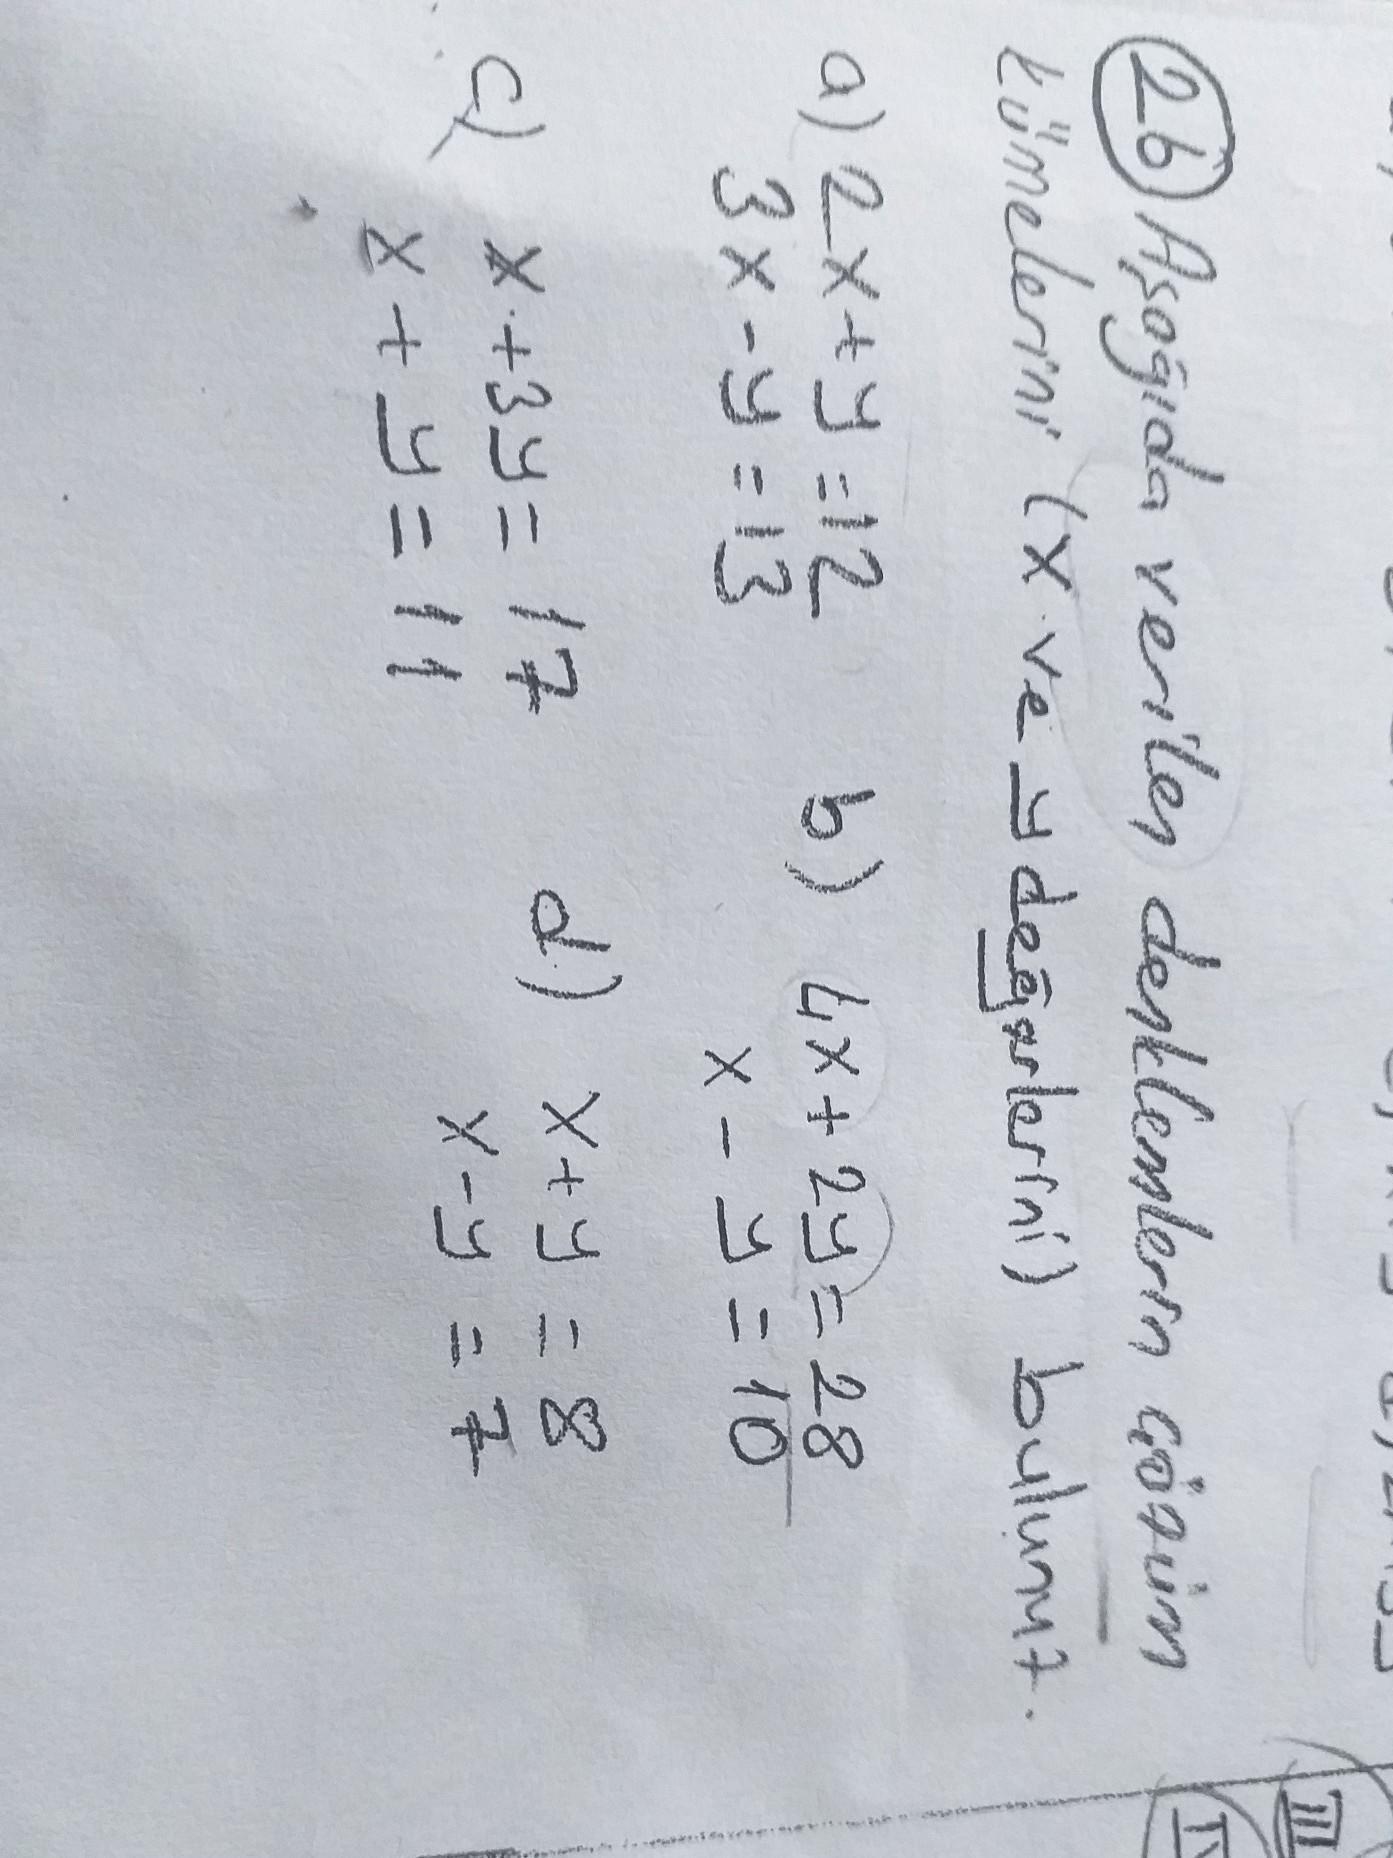 26) Aşağıda verilen denklemlerin çözüm
kümelerini (x ve y değerlerini) bulunuz.
a) 2x+y=12
3x-y=13
b) 4x+2y=28
x-y=10
c) x+3y=17
x+y=11
d) x+y=8
x-y=7
III